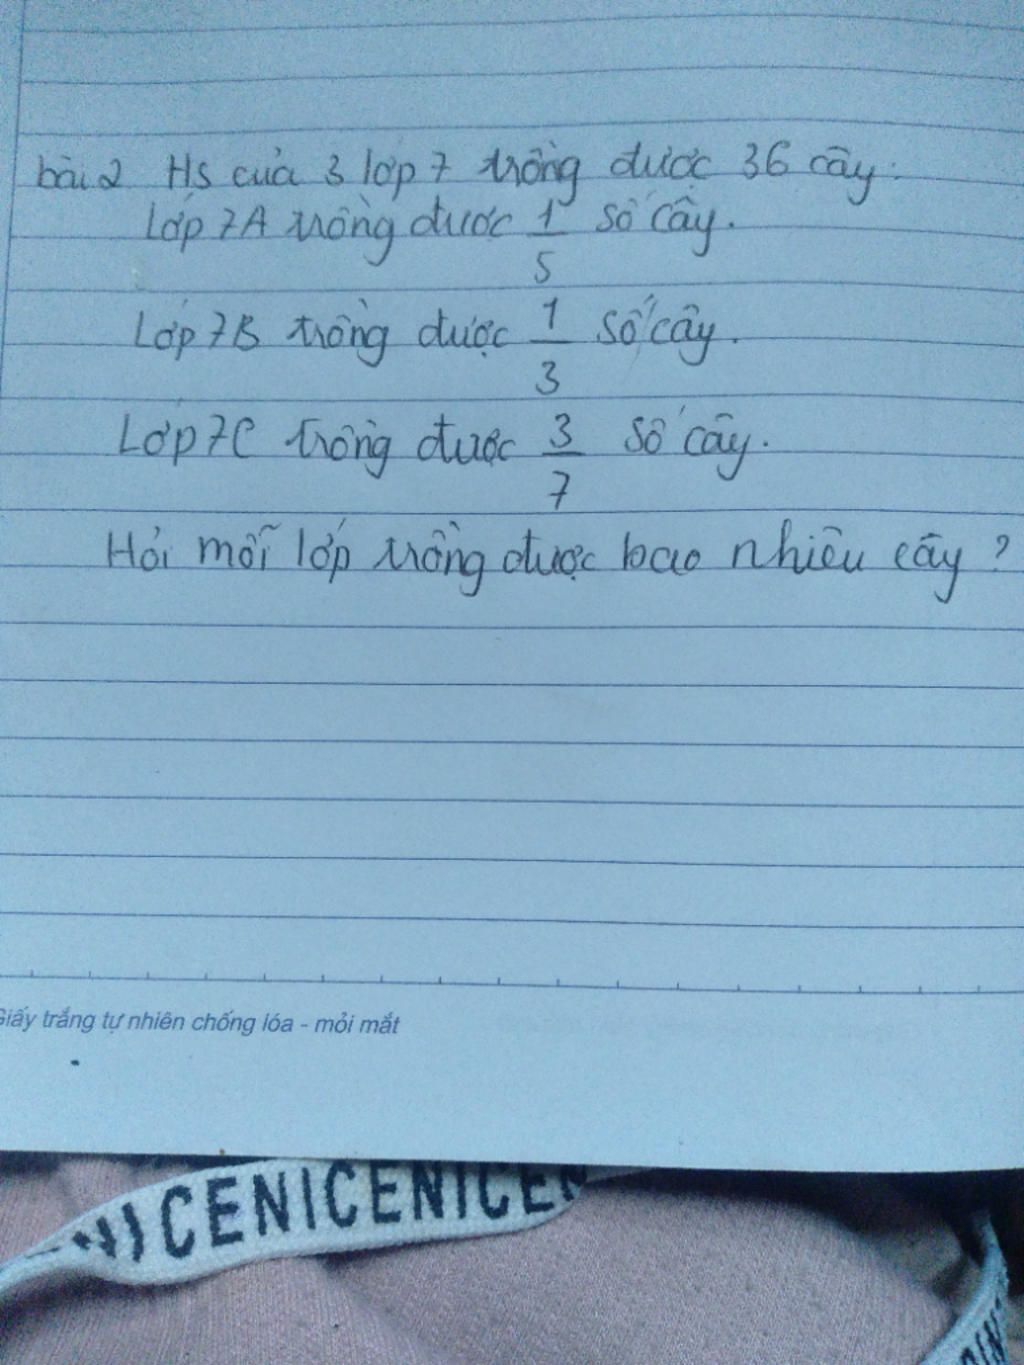 bài 2 Hs của 3 lớp 7 trồng được 36 cây.
Lớp 7A trồng được 1/5 số cây.
Lớp 7B trồng được 1/3 số cây.
Lớp 7C trồng được 3/7 số cây.
Hỏi mỗi lớp trồng được bao nhiêu cây?
Giấy trắng tự nhiên chống lóa - mỏi mắt
CENICENICEN